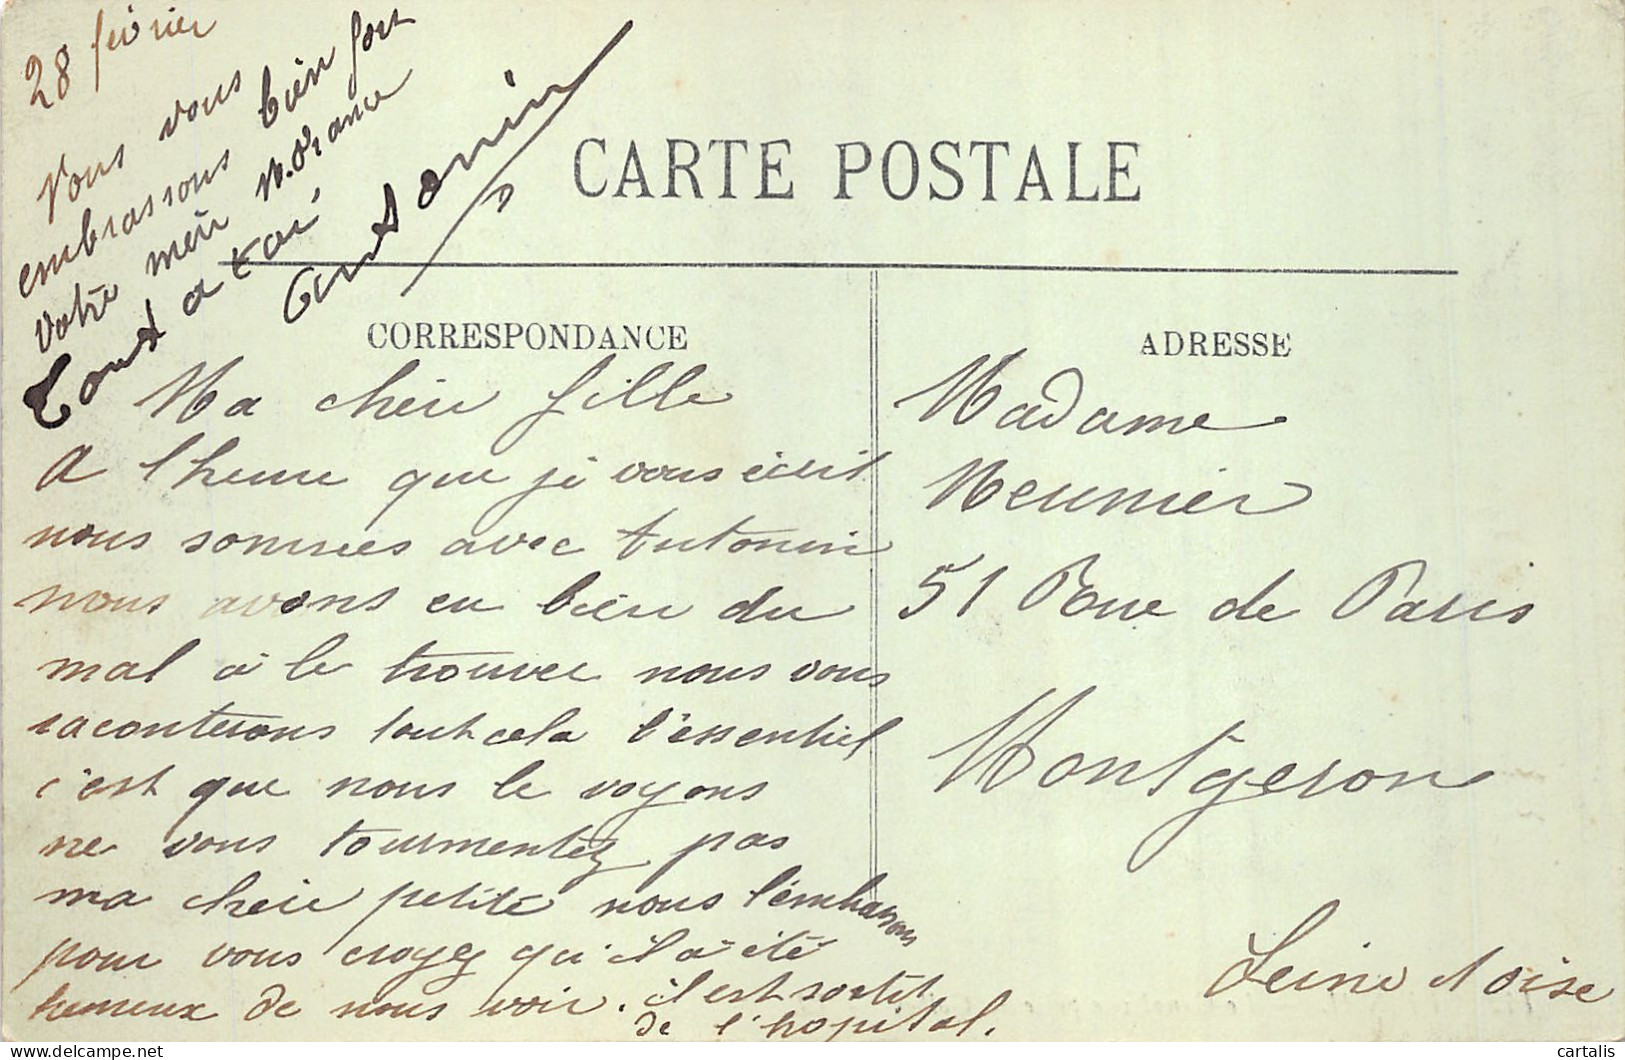 28 février
Nous vous
embrassons bien fort
votre mère
Tout a toi
Antonin
CARTE POSTALE
CORRESPONDANCE
Ma chère fille
A l'heure que je vous écrit
nous sommes avec Antonin
nous avons eu bien du
mal à le trouver nous vous
raconterons tout cela l'essentiel
c'est que nous le voyons
ne vous tourmentez pas
ma chère petite nous l'embrassons
pour vous croyez qu'il a été
heureux de nous voir. il est sortit
de l'hopital.
ADRESSE
Madame
Meunier
51 Rue de Paris
Montgeron
Seine d oise
cartalis